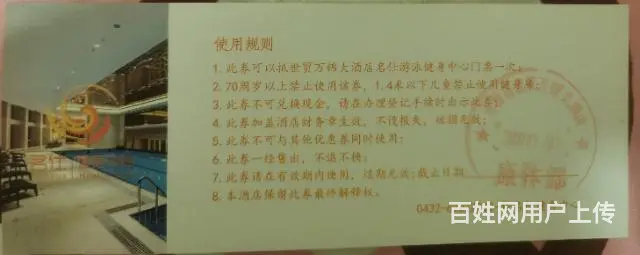 使用规则
1. 此券可以抵世贸万锦大酒店名仕游泳健身中心门票一次;
2. 70周岁以上禁止使用该券,1.4米以下儿童禁止使用健身房;
3. 此券不可兑换现金,请在办理登记手续时出示此券;
4. 此券加盖酒店财务章生效,不慎损失,破损无效;
5. 此券不可与其他优惠券同时使用;
6. 此券一经售出,不退不换;
7. 此券请在有效期内使用,过期无效;截止日期
8. 本酒店保留此券最终解释权。
康体部
0432-
百姓网用户上传